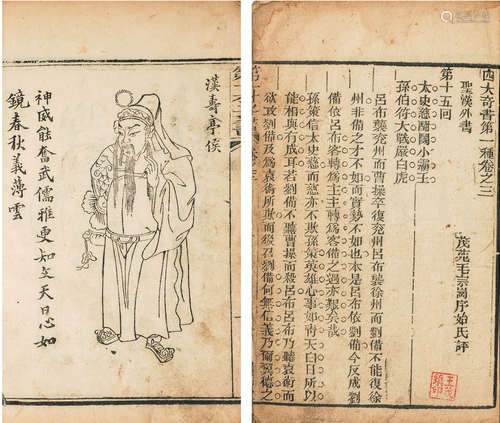 四大奇書第一種卷之三
聖歎外書
茂苑毛宗崗序始氏評
第十五回
太史慈酣鬭小霸王
孫伯符大戰嚴白虎
呂布襲兗州而曹操卒復兗州呂布襲徐州而劉備不能復徐
州非備之才不如而實勢不如也本是呂布依劉備今反成劉
備依呂布客轉爲主主轉爲客備之遇亦艱矣哉
孫策信太史慈而慈亦不欺孫策英雄心事如靑天白日所以
能相與有成耳若劉備不聽曹操而殺呂布呂布乃聽袁術而
欲攻劉備及爲袁術所欺而後召劉備何無信義乃爾
漢壽亭侯
神威能奮武儒雅更知文天日心如
鏡春秋義薄雲